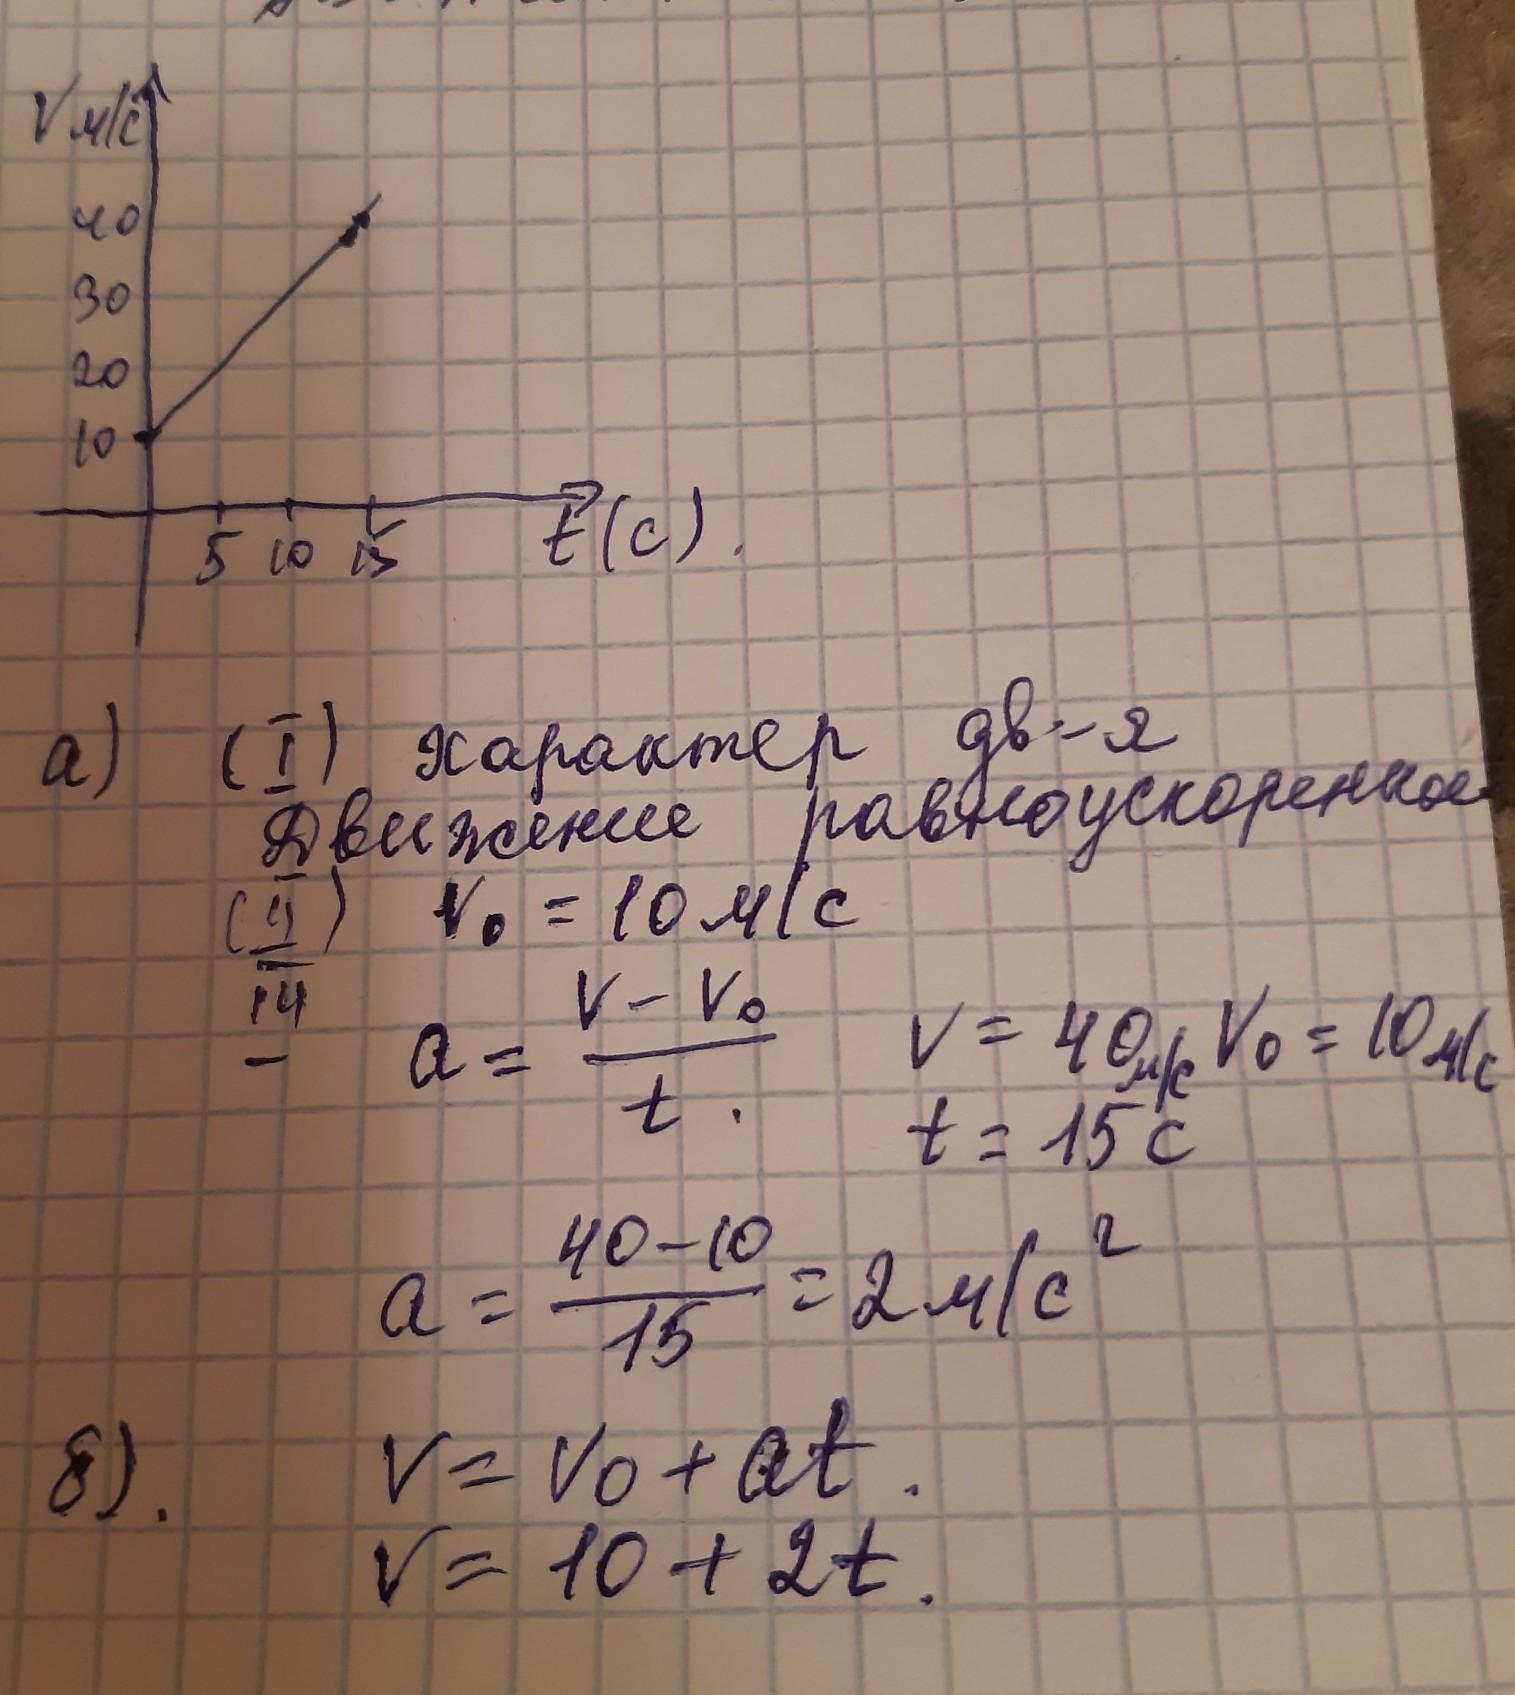 V м/с
40
30
20
10
5 10 15 t(с).
а) (I) характер дв-я
Движение равноускоренное
(II) V₀ = 10 м/с
a = (V - V₀)/t. V = 40 м/с V₀ = 10 м/с
t = 15 с
a = (40-10)/15 = 2 м/с²
б). V = V₀ + at.
V = 10 + 2t.